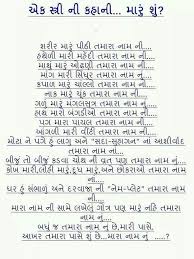 એક સ્ત્રી ની કહાની... મારૂ શું?
શરીર મારૂં પીઠી તમારા નામ ની....
હથેળી મારી મહેંદી તમારા નામ ની....
માથું મારૂં ઓઢણી તમારા નામ ની....
માંગ મારી સિંધુર તમારા નામ નું....
કપાળ મારૂ ચાંદલો તમારા નામ નો....
નાક મારૂં ચૂંક તમારા નામ ની....
ગળું મારૂં મંગલસુત્ર તમારા નામ નું....
હાથ મારા ચૂડીઓ તમારા નામ ની....
પગ મારા પાયલ તમારા નામ ની....
આંગળી મારી વીંટી તમારા નામ ની....
મોટા ને પગે હું લાગુ અને "સદા-સુહાગન" નાં આશીર્વાદ
તમારા નામ નાં....
બીજું તો બીજું કડવા ચૌથ નું વ્રત પણ તમારા નામ નું....
કોખ મારી,લોહી મારૂં,દૂધ મારૂં અને છોકરાઓ તમારા નામ ના....
ઘર હું સંભાળું અને દરવાજા ની "નેમ-પ્લેટ" તમારા નામ ની....
મારા નામ ની સાથે લખેલું ગૌત્ર પણ મારૂં નહિ તમારા
નામ નું....
બધું જ તમારા નામ નું છે,મારી પાસે.
આખરે તમારા પાસે શું છે...મારા નામ નું ......?